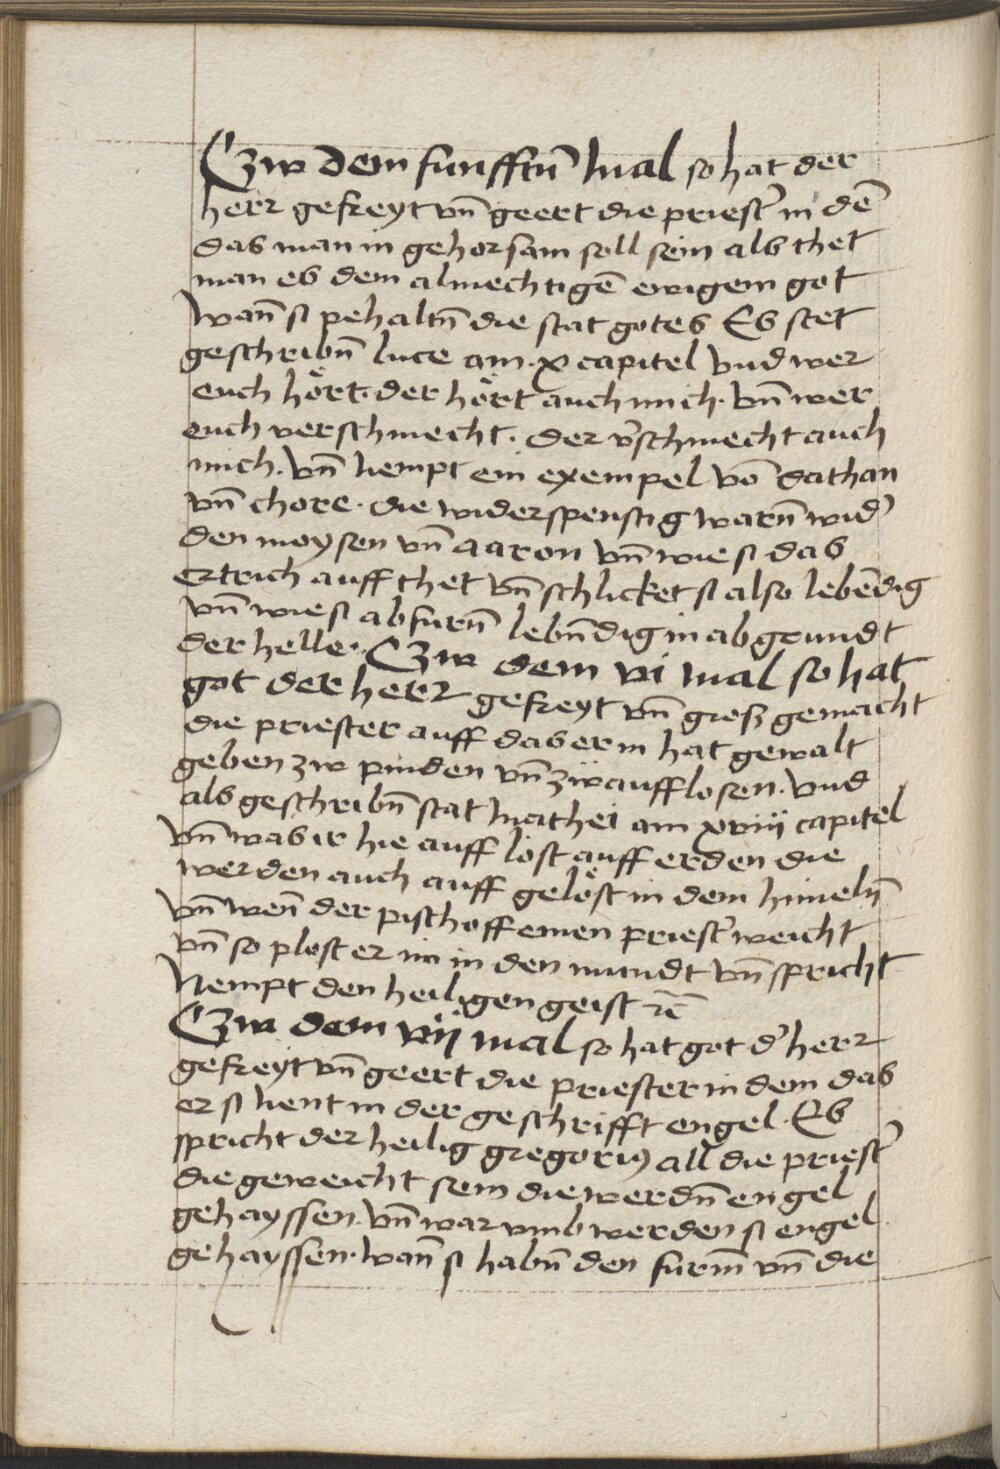 Czw dem funfftñ mal so hat der
herr gefreyt vñ geert die priest' in dē
das man in gehorsam soll sein als thet
man es dem almechtigē ewigem got
Wañ si pehaltñ die stat gotes Es stet
geschribñ luce am · x capitel Vnd wer
euch hört · der hört auch mich · Vñ wer
euch verschmecht · der v'schmecht auch
mich · Vñ nempt ein exempel vō dathan
vñ chore · die widerspenstig warñ wid'
den moysen vñ aaron vñ wie si das
ertrich auff thet vñ schlicket si also lebēdig
vñ wie si abfurñ lebñdig in abgrundt
der helle · Czw dem vi mal so hat
got der herr gefreyt vñ gross gemacht
die priester auff das er in hat gewalt
geben zw pinden vñ zw aufflosen · Vnd
als geschribñ stat Mathei am xviij capitel
Vñ was ir hie auff löst auff erden die
werden auch auff gelöst in dem himelñ
Vñ wen̄ der pischoff einen priest' weicht
vñ so plost er im in den mundt vñ spricht
Nempt den heiligen geist rc̄
Czw dem vij mal so hat got d' herr
gefreyt vñ geert die priester in dem das
er si nent in der geschrifft engel · Es
spricht der heilig gregorius all die priest'
die geweicht sein die werdñ engel
gehayssen · Vñ war vmb werden si engel
gehayssen · Wañ si habñ den furm̄ vñ die